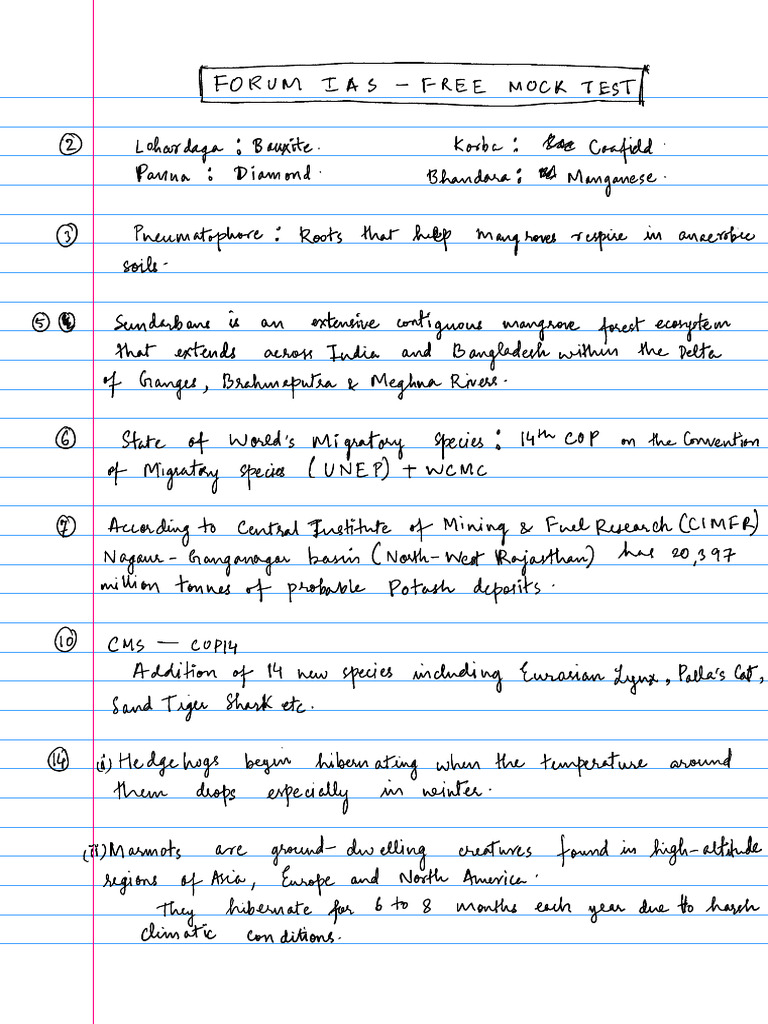 FORUM IAS - FREE MOCK TEST
② Lohardaga : Bauxite. Korba : Coafield.
Panna : Diamond. Bhandara : Manganese.
③ Pneumatophore : Roots that help mangroves respire in anaerobic
soils.
⑤ Sundarbans is an extensive contiguous mangrove forest ecosystem
that extends across India and Bangladesh within the Delta
of Ganges, Brahmaputra & Meghna Rivers.
⑥ State of World's Migratory Species : 14th COP on the Convention
of Migratory species (UNEP) + WCMC
⑦ According to Central Institute of Mining & Fuel Research (CIMFR)
Nagaur - Ganganagar basin (North-West Rajasthan) has 20,397
million tonnes of probable Potash deposits.
⑩ CMS — COP14
Addition of 14 new species including Eurasian Lynx, Palla's Cat,
Sand Tiger Shark etc.
⑭ (i) Hedgehogs begin hibernating when the temperature around
them drops especially in winter.
(ii) Marmots are ground-dwelling creatures found in high-altitude
regions of Asia, Europe and North America.
They hibernate for 6 to 8 months each year due to harsh
climatic conditions.